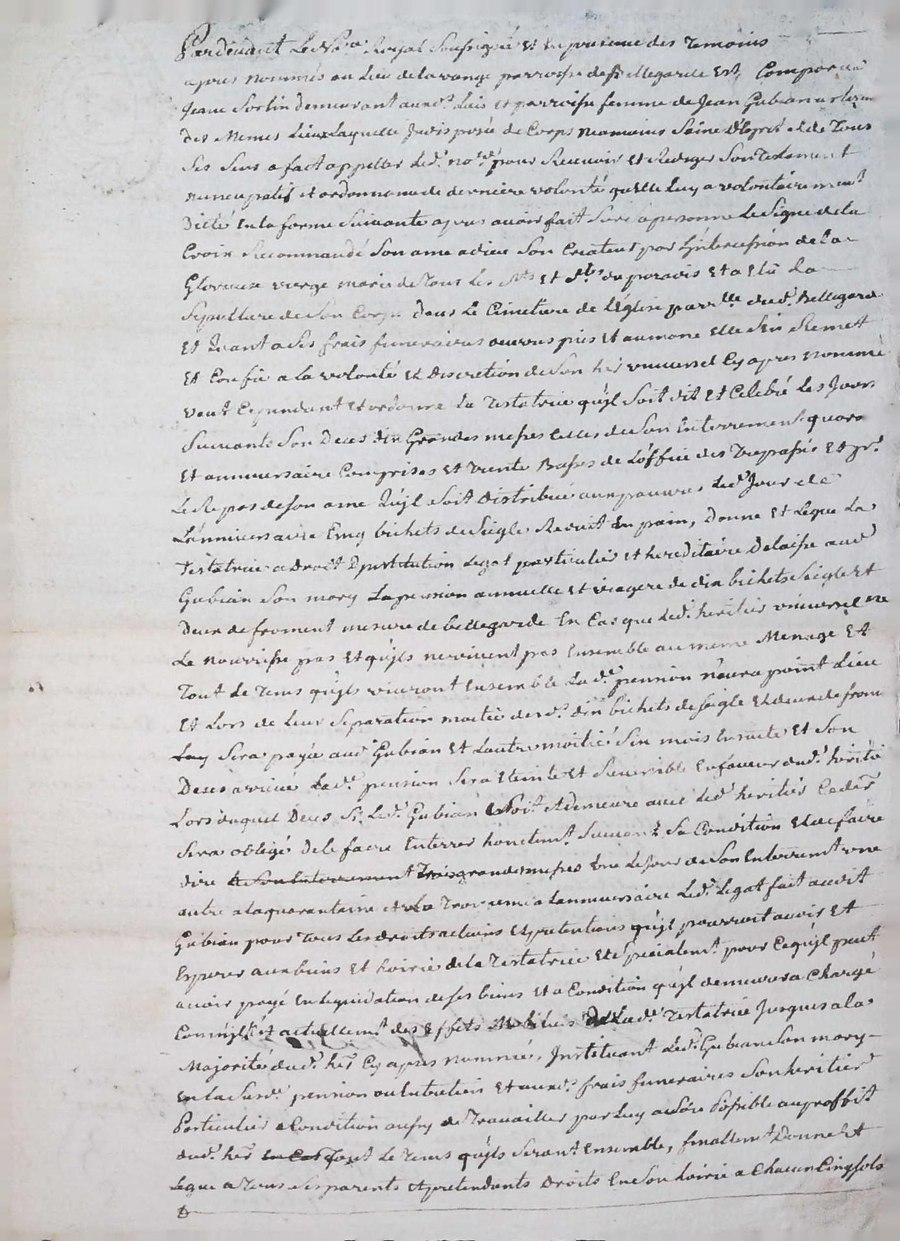 Pardevant Le No.re Royal Soussigné Et En presence des Temoins
apres nommés au Lieu de parroisse de Bellegarde Est Comparue
Jeane Sorlin demeurant aux d. Lieu et parroisse femme de Jean Gubian
des Memes Lieux Laquelle Indisposée de Corps neamoins Saine D'Esprit et de Tous
Ses Sens a fact appeller Led. no.re pour Recevoir Et Rediger Son Testament
nuncupatif et ordonnance de derniere volonté qu'Elle Luy a volontairement
Dicté En la forme Suivante apres avoir fait Sur Sa personne Le Signe de la
Croix Recommandé Son ame a dieu Son Createur par L'Intercession de la
Glorieuse vierge marie de Tous Les S.ts Et S.tes du paradis Et a Elu La
Sepulture de Son Corps Dans Le Cimetiere de L'Eglise parr.lle dud. Bellegarde
Et Quant a Ses frais funeraires œuvres pies Et aumone Elle S'En Remet
Et Confie a la volonté Et Discretion de Son her. universel Cy apres nommé
veut Cependant Et ordonne La Testatrice qu'yl Soit dit Et Celebré Les Jours
Suivants Son Deces dix Grandes messes Celles de Son Enterrement quara.
Et anniversaire Comprises Et vingt Basses de L'office des Trepassés Et pr.
Le Repos de Son ame Qu'yl Soit Distribué aux pauvres Led. Jour de
L'anniversaire Cinq bichets de Seigle Reduit En pain, Donne Et Legue La
Testatrice a Droit D'Institution Legat particulier Et hereditaire Delaisse aud.
Gubian Son mary La pension annuelle Et viagere de dix bichets Seigle Et
Deux de froment mesure de bellegarde En Cas que Led. heritier universel ne
Le nourrisse pas Et qu'yls ne vivent pas Ensemble au meme Menage Et
Tout Le Tems qu'yls vivront Ensemble La d.e pension n'aura point Lieu
Et Lors de Leur Separation moitié desd. dix bichets de Seigle Et deux de from.
Sera payée aud. Gubian Et L'autre moitié Six mois Ensuite Et Son
Deces arrivé Lad.e pension Sera Eteinte Et Reversible En faveur dud. heritié
Lors duquel Deces Si Led. Gubian Et demeure avec Led. heritier Ce der.
Sera obligé de le faire Enterrer honetem.t Suivant Sa Condition Et de faire
dire Trois grandes messes Une Le Jour de Son Enterrement une
autre a la quarantaine Et La Troisieme a L'anniversaire Led. Legat fait aud.
Gubian pour Tous Les droits actions Et pretentions qu'yl pourroit avoir Et
Esperer aux biens Et hoirie de la Testatrice Et Specialem.t pour Ce qu'yl peut
avoir payé En liquidation de Ses biens Et a Condition qu'yl demeurera Chargé
actuellem.t des Effets Mobiliers de Lad.e Testatrice Jusques a la
Majorité dud. her. Cy apres nommé, Instituant Led. Gubian Son mary
En la Susd. pension ou Entretien Et auxd. frais funeraires Son heritier
Particulier a Condition aussy de Travailler par Luy a Son Possible au proffit
dud. her. Tout Le Tems qu'yls Seront Ensemble, finallement Donne Et
Legue a Tous Ses parents Et pretendants Droits En Son hoirie a Chacun Cinq Sols